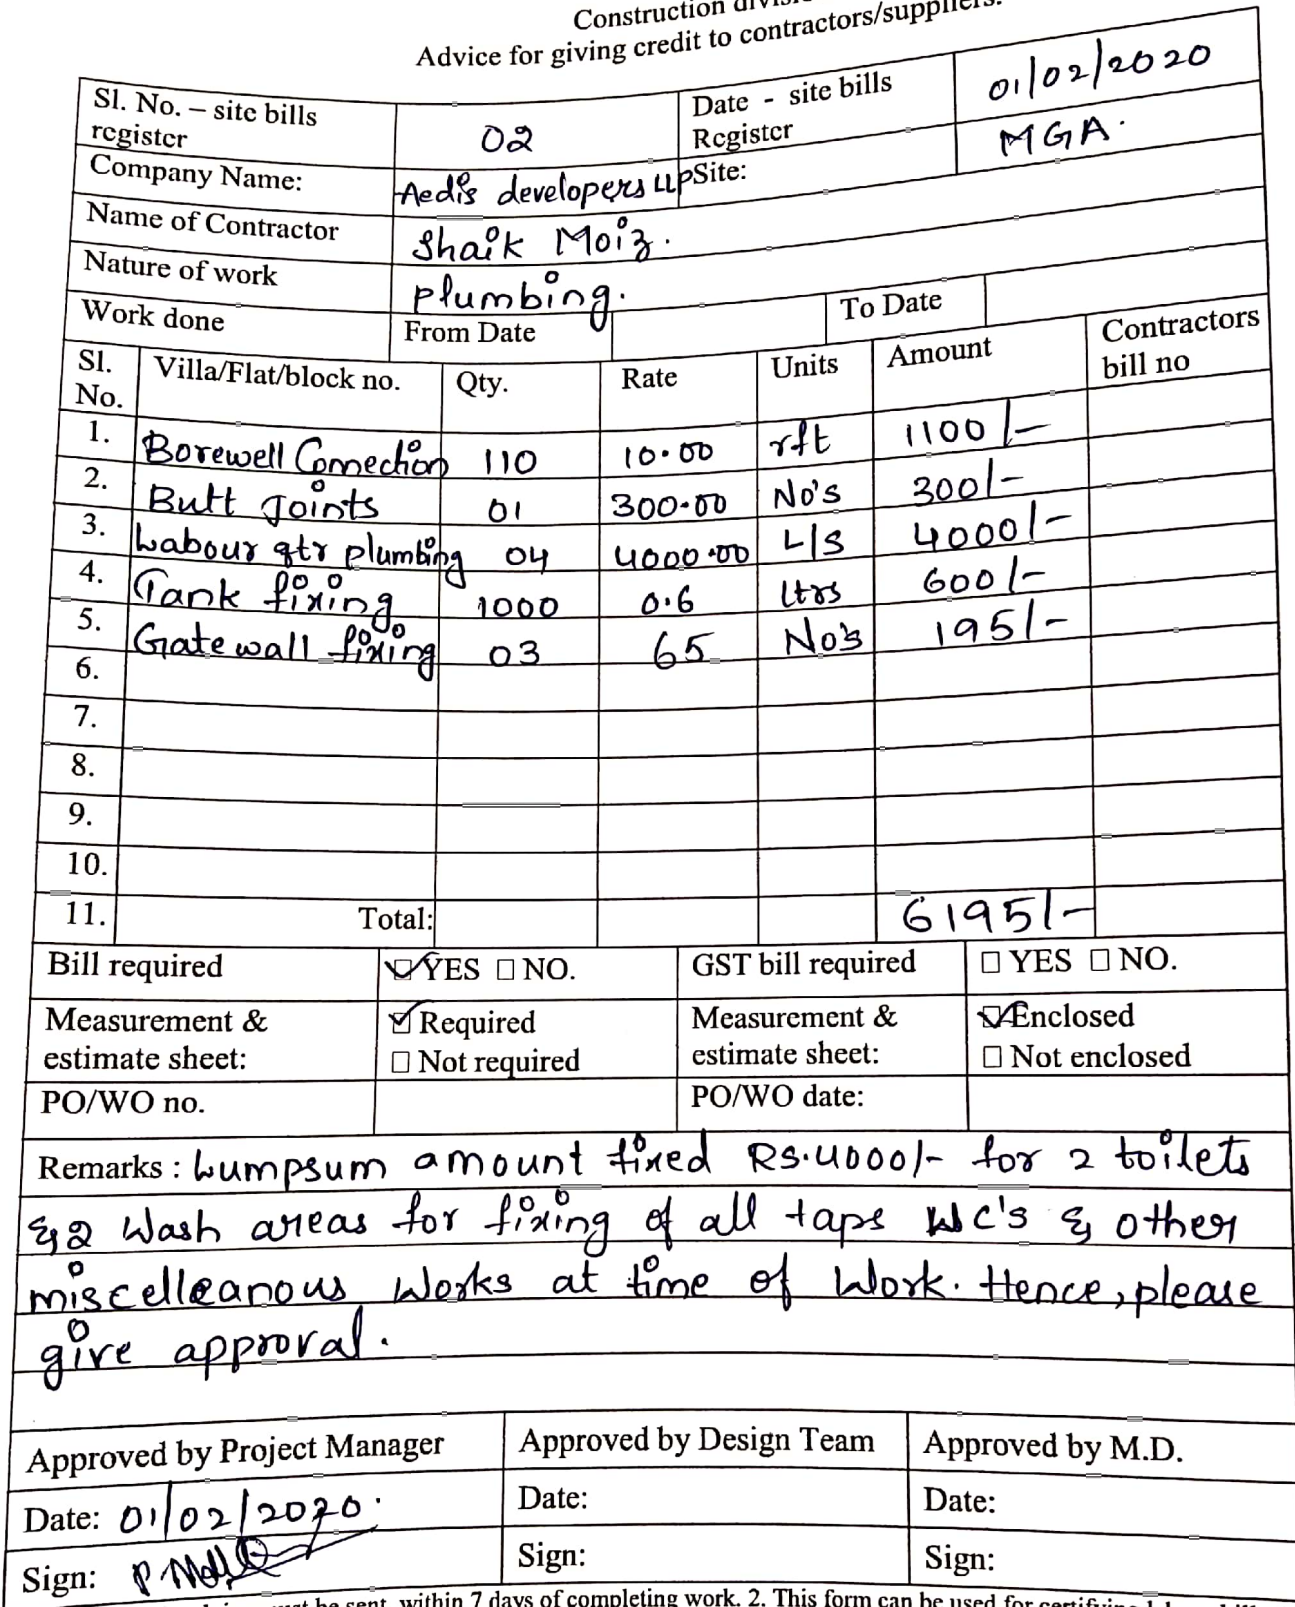 Construction
Advice for giving credit to contractors/suppliers.
Sl. No. – site bills register 02 Date - site bills Register 01/02/2020
Company Name: Aedis developers LLP Site: MGA.
Name of Contractor Shaik Moiz.
Nature of work Plumbing.
Work done From Date To Date
Sl. No. Villa/Flat/block no. Qty. Rate Units Amount Contractors bill no
1. Borewell Connection 110 10.00 rft 1100/-
2. Butt Joints 01 300.00 No's 300/-
3. Labour qtr plumbing 04 4000.00 L/S 4000/-
4. Tank fixing 1000 0.6 ltrs 600/-
5. Gate wall fixing 03 65 No's 195/-
6.
7.
8.
9.
10.
11. Total: 6195/-
Bill required ☑ YES ☐ NO. GST bill required ☐ YES ☐ NO.
Measurement & estimate sheet: ☑ Required ☐ Not required Measurement & estimate sheet: ☑ Enclosed ☐ Not enclosed
PO/WO no. PO/WO date:
Remarks : Lumpsum amount fixed Rs.4000/- for 2 toilets
& 2 Wash areas for fixing of all taps WC's & other
miscelleanous works at time of work. Hence, please
give approval.
Approved by Project Manager Approved by Design Team Approved by M.D.
Date: 01/02/2020. Date: Date:
Sign: Sign: Sign:
be sent within 7 days of completing work. 2. This form can be used for